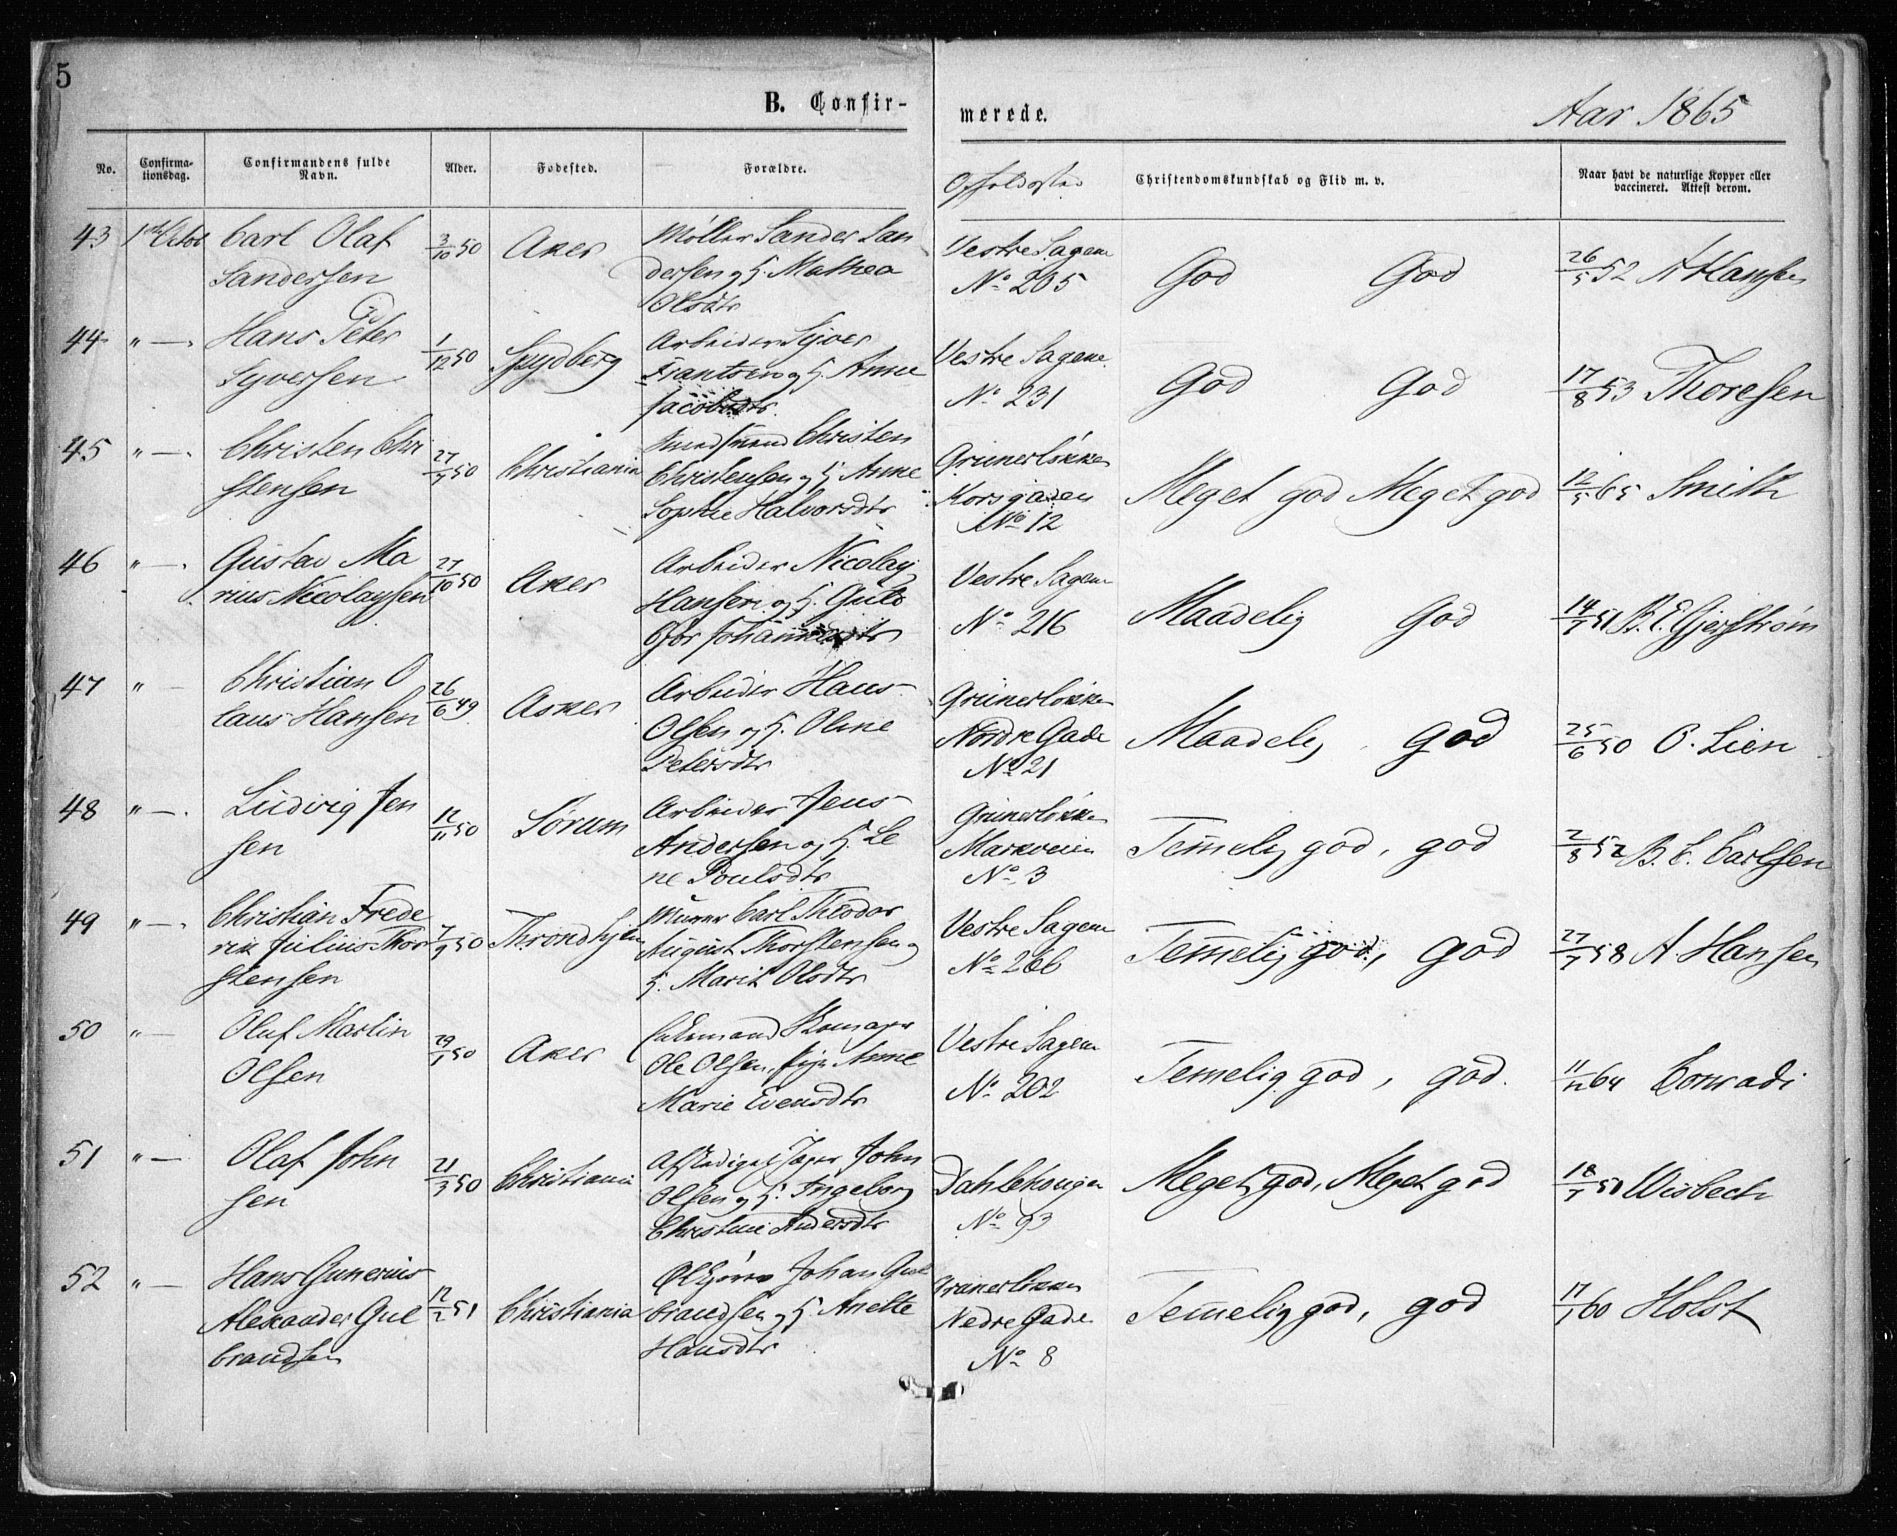 5
B. Confir-
merede.
Aar 1865
No.
Confirma-
tionsdag.
Confirmandens fulde
Navn.
Alder.
Fødested.
Forældre.
Opholdssted
Christendomskundskab og Flid m. v.
Naar havt de naturlige Kopper eller
vaccineret. Attest derom.
43 1ste Octob Carl Olaf
Sandersen
3/10 50 Aker
Møller Sander San
dersen og H. Mathea
Olsdtr
Vestre Sagene
No 205
God God
26/5 52 A Hansen
44 " — . Hans Peter
Syversen
1/12 50 Spydberg
Arbeider Syver
Frantsen og H. Anne
Jacobsdtr.
Vestre Sagene
No 231
God God
17/8 53 Thoresen
45 " — . Christen Chri
stensen
27/7 50 Christiania
Christen
Christensen og H. Anne
Sophie Halvorsdtr
Grünerløkken
Korsgaden
No 12
Meget god Meget god
12/5 65 Smith
46 " — . Gustav Ma
rius Nicolaysen
27/10 50 Aker
Arbeider Nicolay
Hansen og H. Guld
Johannesdtr
Vestre Sagene
No 216
Maadelig God
14/7 51 B. E. Gjerstrøm
47 " — Christian O
laus Hansen
26/6 49 Asker
Arbeider Hans
Olsen og H. Oline
Petersdtr
Grünerløkken
Nordre Gade
No 21
Maadelig God
25/6 50 O. Lien
48 " — . Ludvig Jen
sen
12/11 50 Sørum
Arbeider Jens
Andersen og H. Le
ne Poulsdtr
Grünerløkken
Markveien
No 3
Temelig god, god
2/8 52 B. C. Carlsen
49 " — . Christian Frede
rik Julius Thor
stensen
7/9 50 Throndhjem
Murer Carl Theodor
August Thorstensen og
H. Marit Olsdtr
Vestre Sagene
No 266
Temelig god, god
27/7 58 A. Hansen
50 " — Oluf Martin
Olsen
29/1 50 Aker
Enkemand Skomager
Ole Olsen, Pige Anne
Marie Evensdtr
Vestre Sagene
No 202
Temelig god, god.
11/12 64 Conradi
51 " — Olaf John
sen
21/3 50 Christiania
Afskediget Jæger John
Olsen og H. Ingeborg
Christine Andersdtr
Dahlehougen
No 93
Meget god, Meget god
18/7 50 Wisbech
52 " — Hans Gunerius
Alexander Gul
brandsen
12/2 51 Christiania
Johan Gul
brandsen og H. Anette
Hansdtr
Grünerløkken
Nedre Gade
No 8
Temelig god, god
17/7 60 Holst